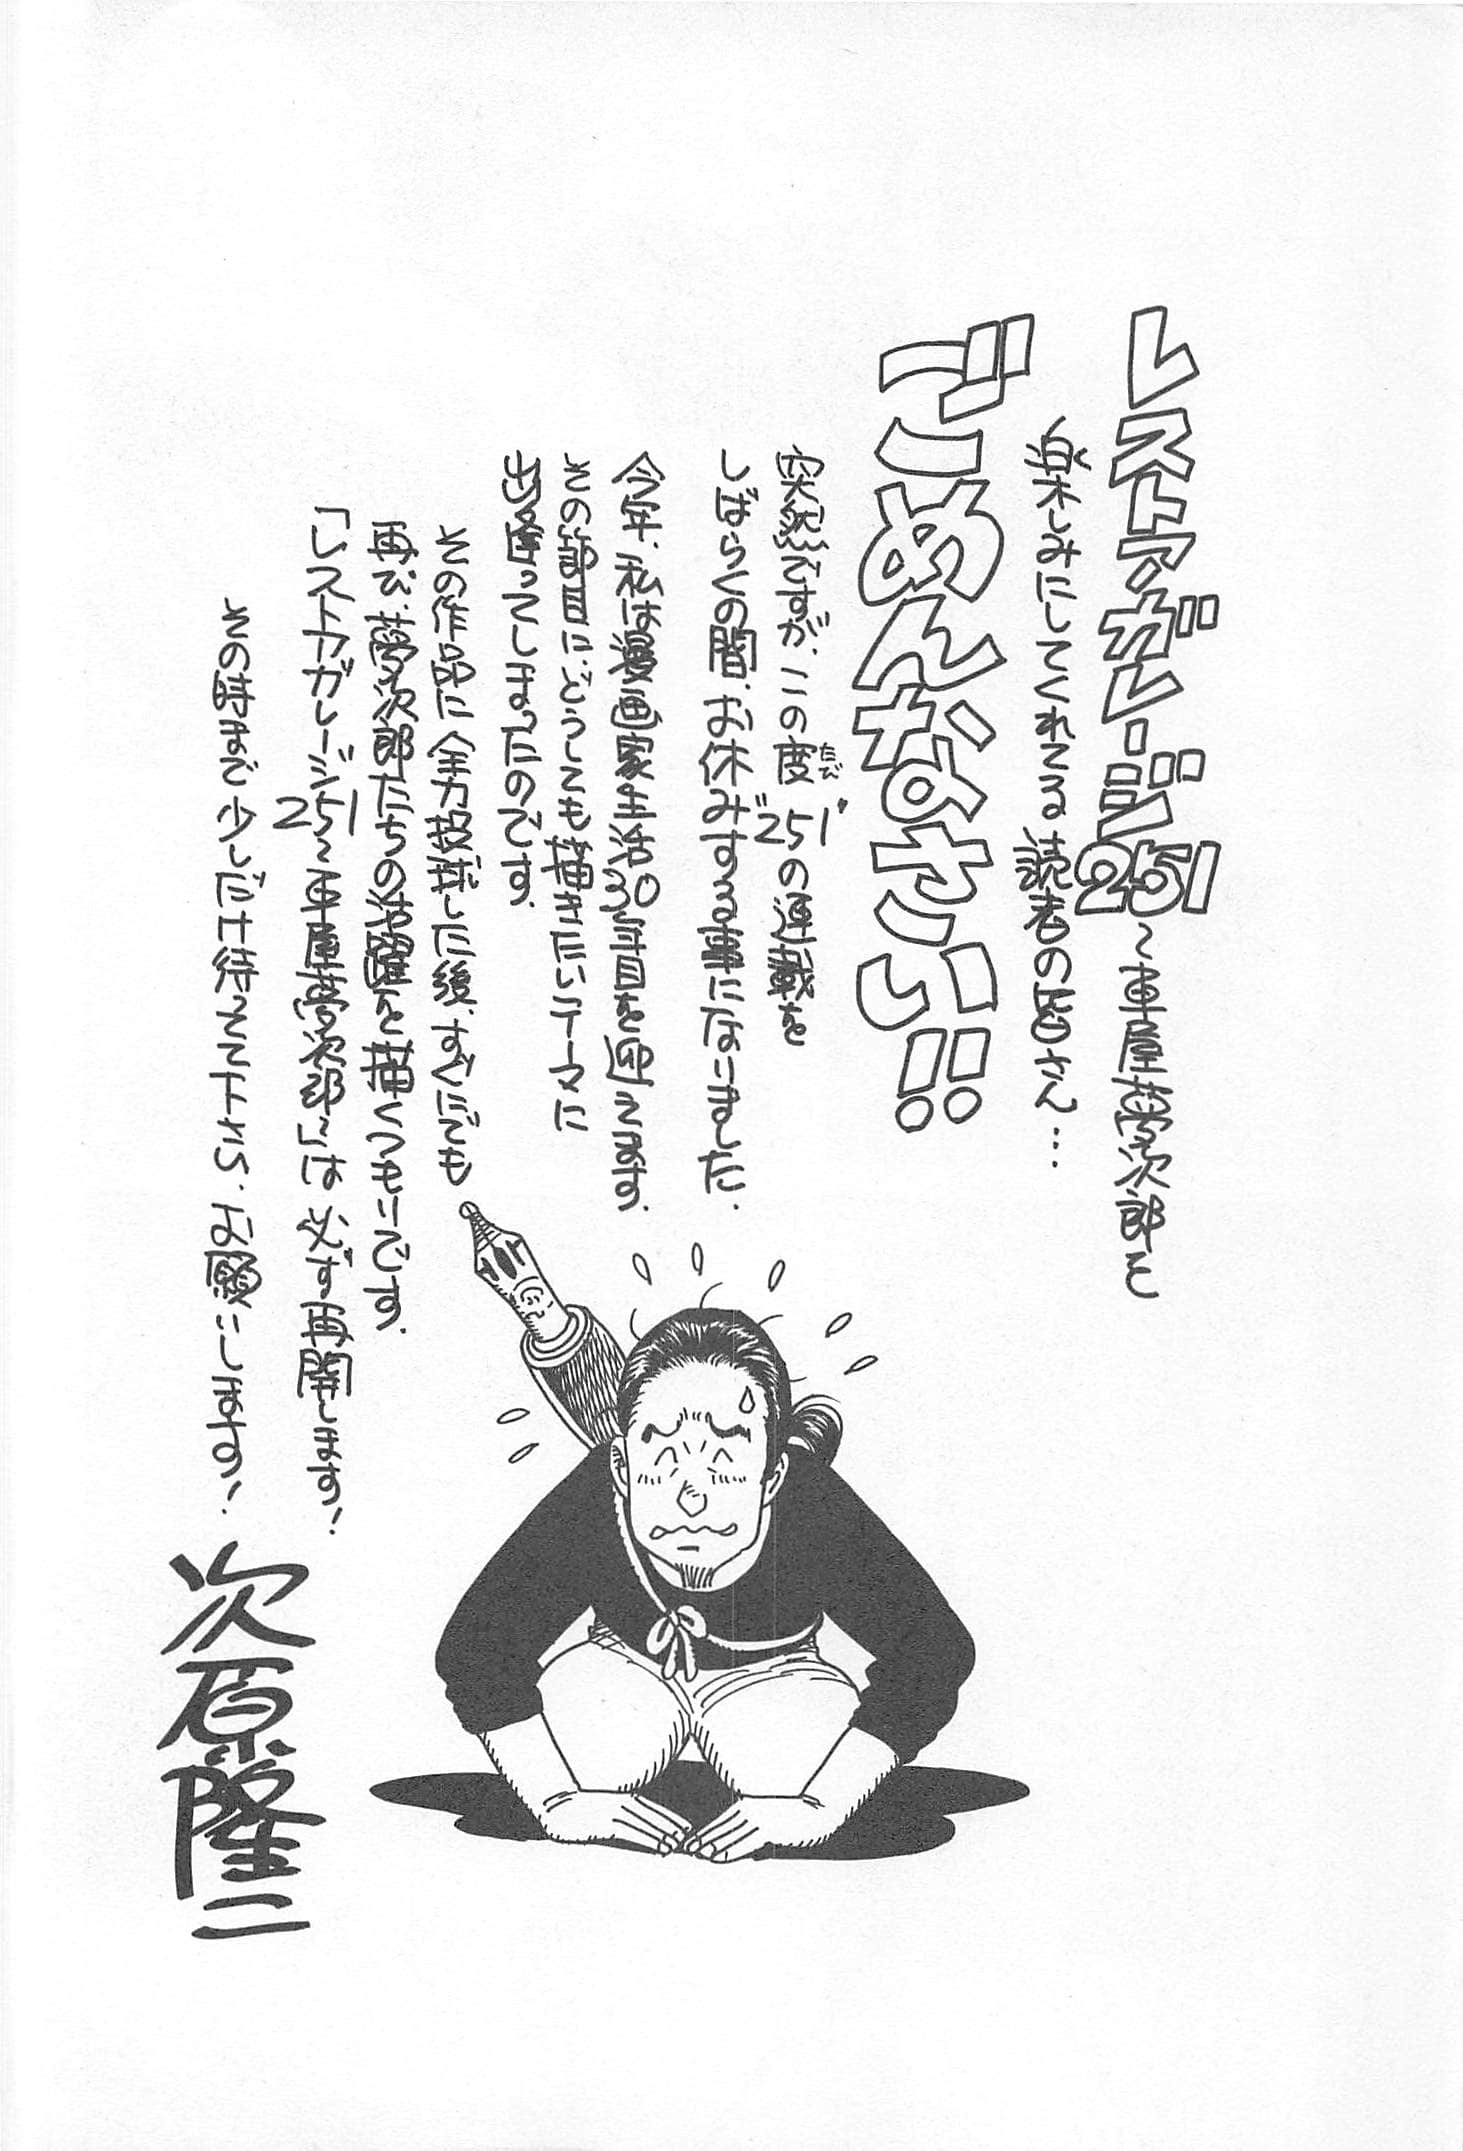 レストアガレージ251～車屋夢次郎を
楽しみにしてくれてる読者の皆さん…
ごめんなさい!!
突然ですが、この度たび"251"の連載を
しばらくの間、お休みする事になりました.
今年、私は漫画家生活30年目を迎えます.
その節目に、どうしても描きたいテーマに
出逢ってしまったのです.
その作品に全力投球した後、すぐにでも
再び、夢次郎たちの活躍を描くつもりです.
「レストアガレージ251～車屋夢次郎～」は必ず再開します!
その時まで少しだけ待ってて下さい.お願いします!
次原隆二
G2